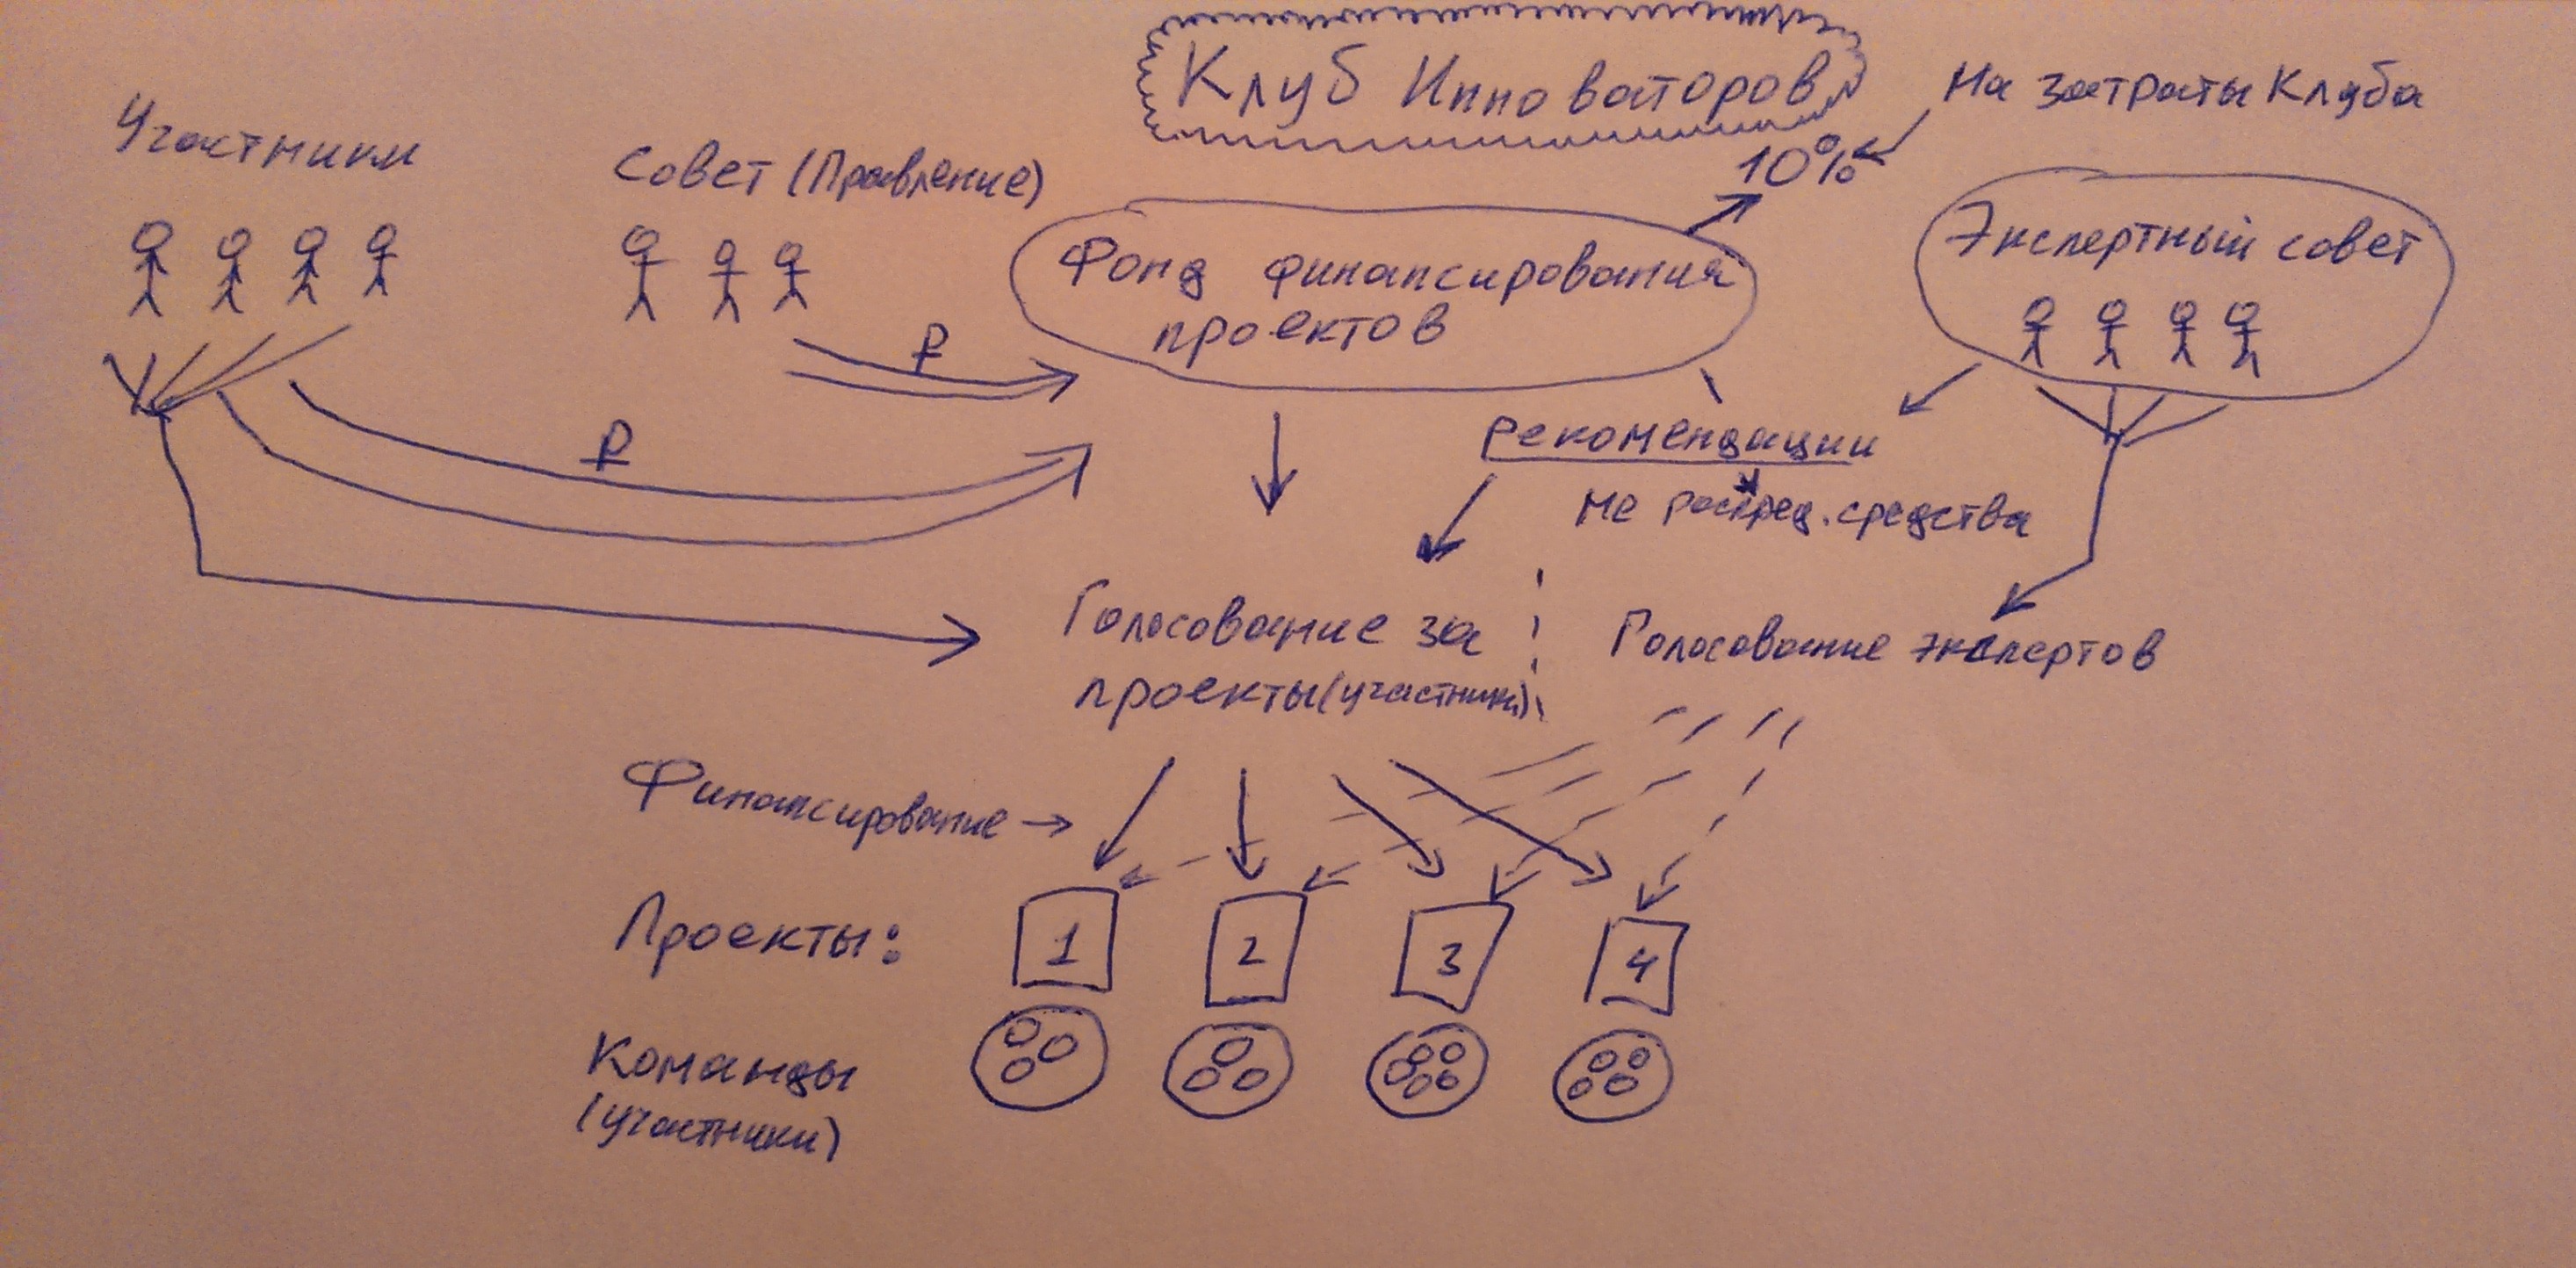 Клуб Инноваторов
На затраты Клуба
10%
Участники
Совет (Правление)
Фонд финансирования
проектов
Экспертный совет
₽
₽
рекомендации
Не распред. средства
Голосование за
проекты (участники)
Голосование экспертов
Финансирование →
Проекты:
1 2 3 4
Команды
(участники)